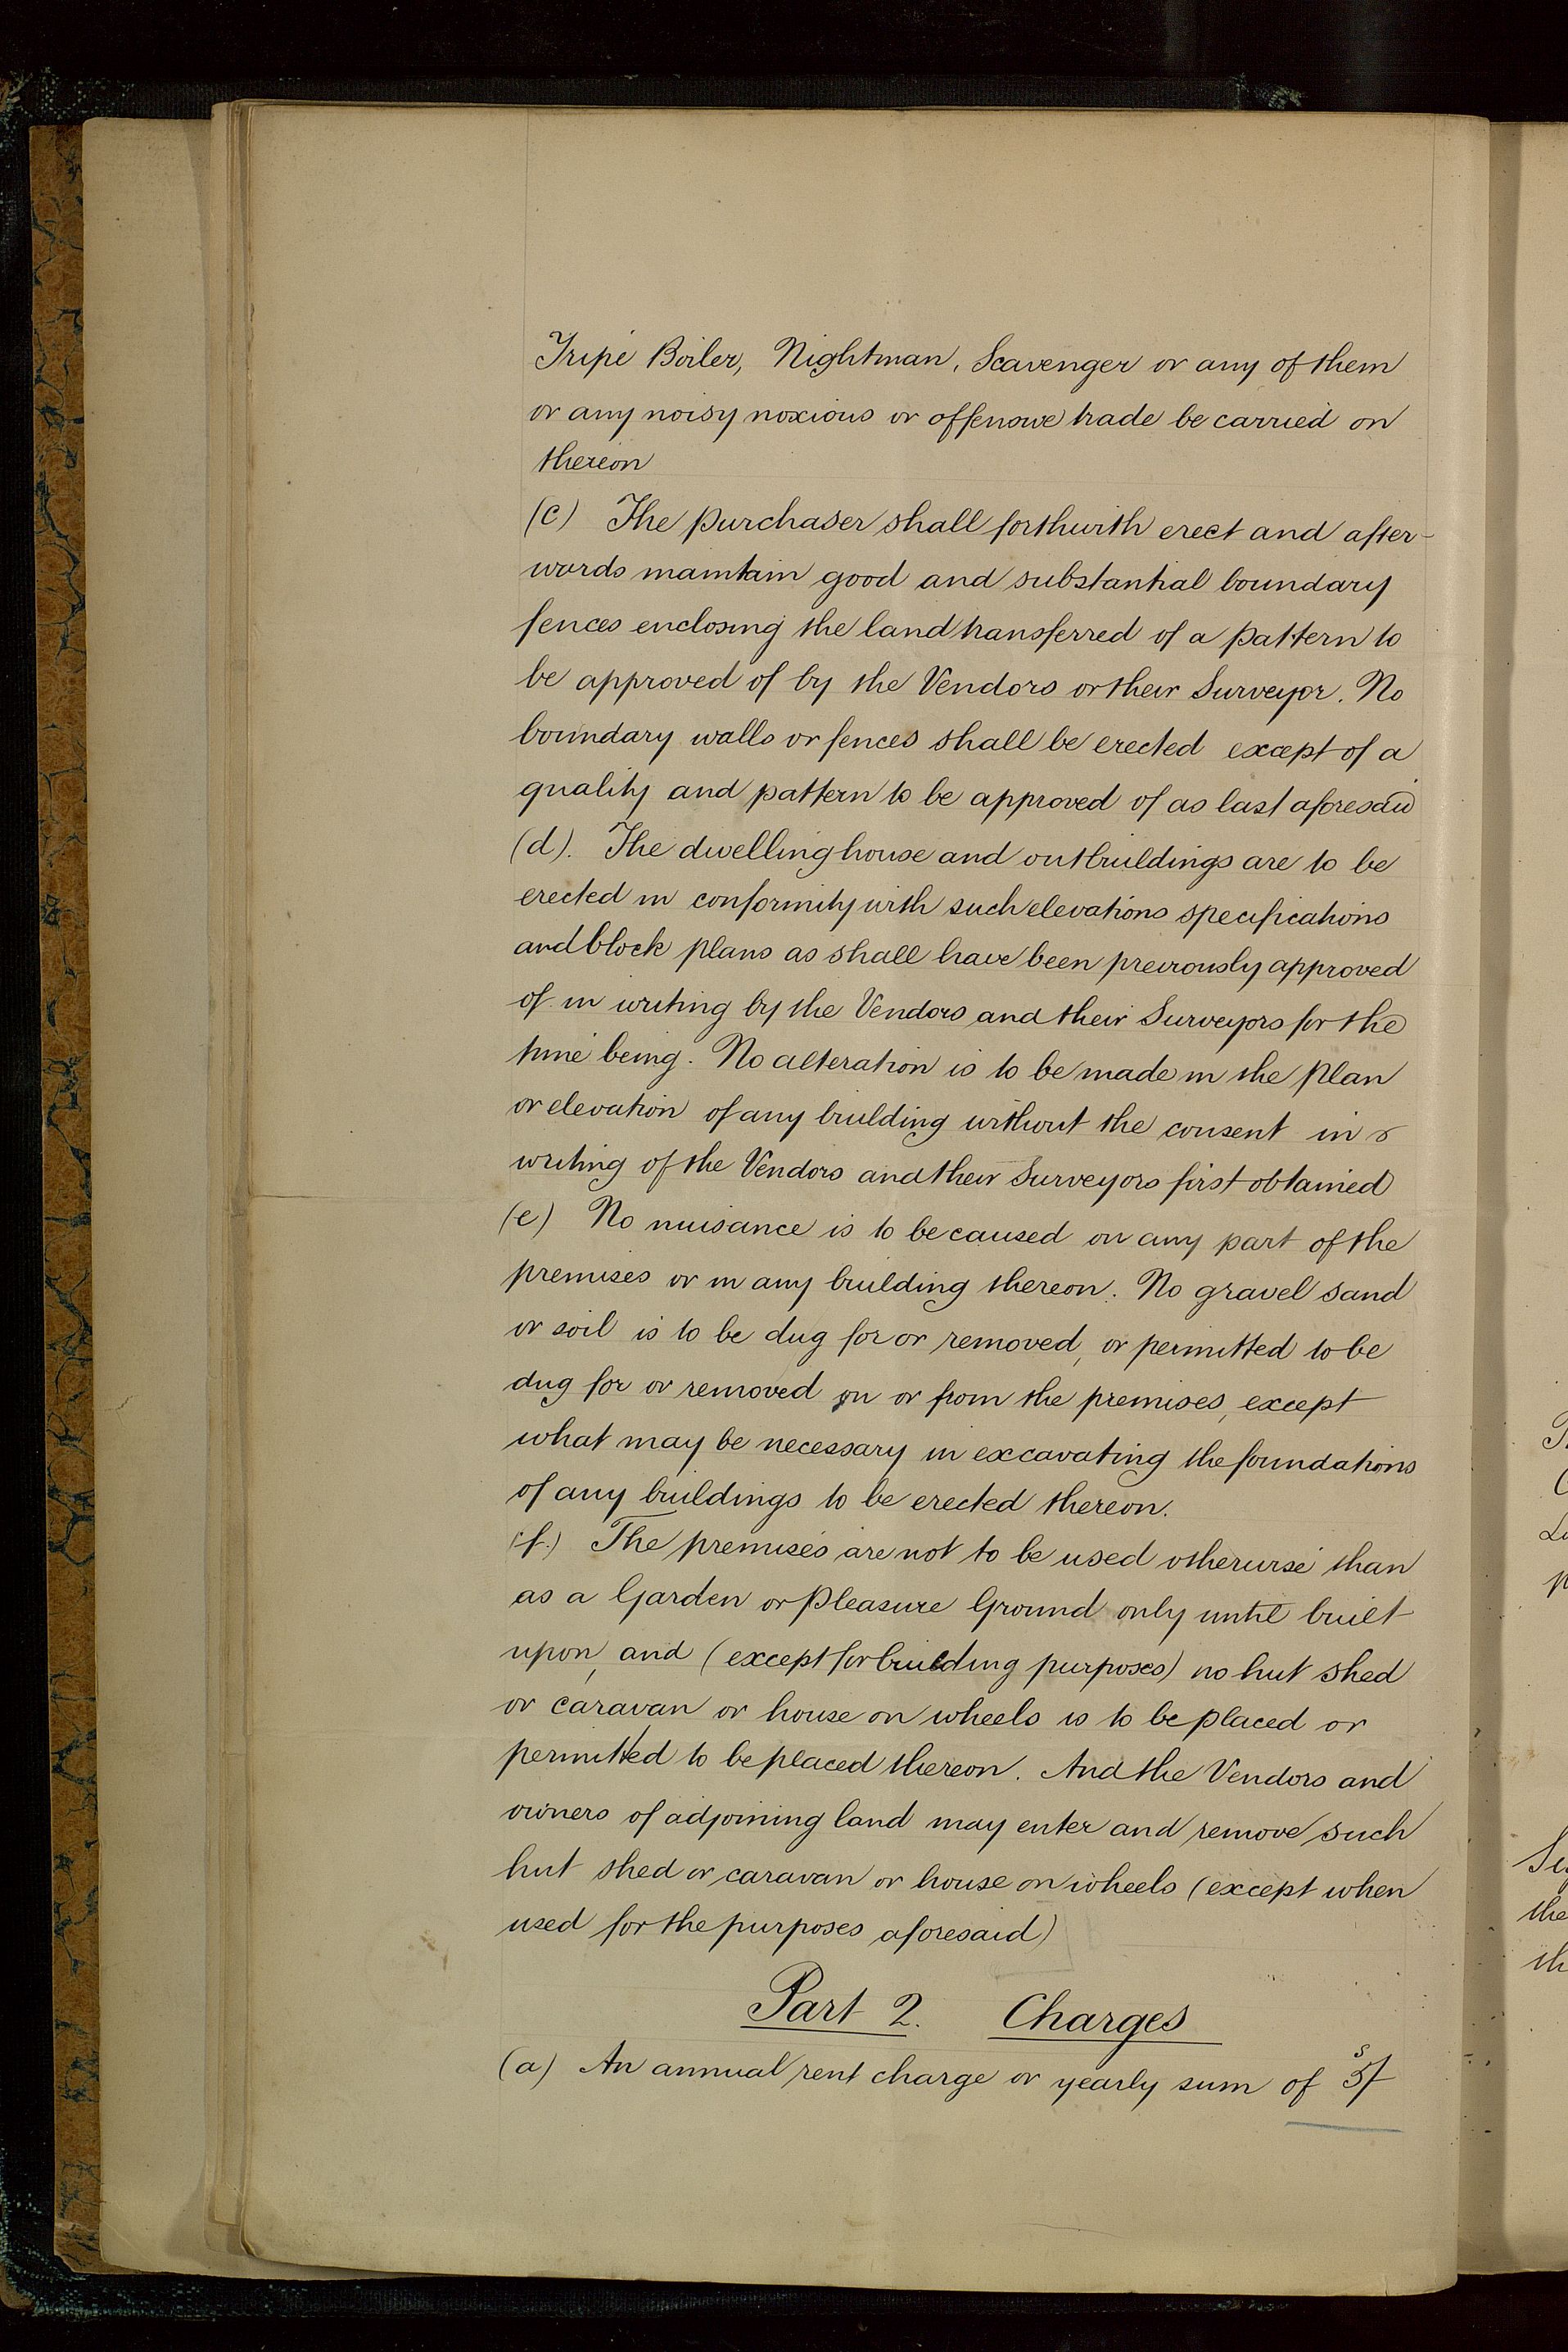 Tripe Boiler, Nightman, Scavenger or any of them
or any noisy noxious or offensive trade be carried on
thereon
(c) The purchaser shall forthwith erect and after-
wards maintain good and substantial boundary
fences enclosing the land transferred of a pattern to
be approved of by the Vendors or their Surveyor. No
boundary walls or fences shall be erected except of a
quality and pattern to be approved of as last aforesaid
(d). The dwelling house and outbuildings are to be
erected in conformity with such elevations specifications
and block plans as shall have been previously approved
of in writing by the Vendors and their Surveyors for the
time being. No alteration is to be made in the plan
or elevation of any building without the consent in
writing of the Vendors and their Surveyors first obtained
(e) No nuisance is to be caused on any part of the
premises or in any building thereon. No gravel sand
or soil is to be dug for or removed, or permitted to be
dug for or removed on or from the premises, except
what may be necessary in excavating the foundations
of any buildings to be erected thereon.
(f.) The premises are not to be used otherwise than
as a Garden or Pleasure Ground only until built
upon, and (except for building purposes) no hut shed
or caravan or house on wheels is to be placed or
permitted to be placed thereon. And the Vendors and
owners of adjoining land may enter and remove such
hut shed or caravan or house on wheels (except when
used for the purposes aforesaid)
Part 2. Charges
(a) An annual rent charge or yearly sum of 5/s
the